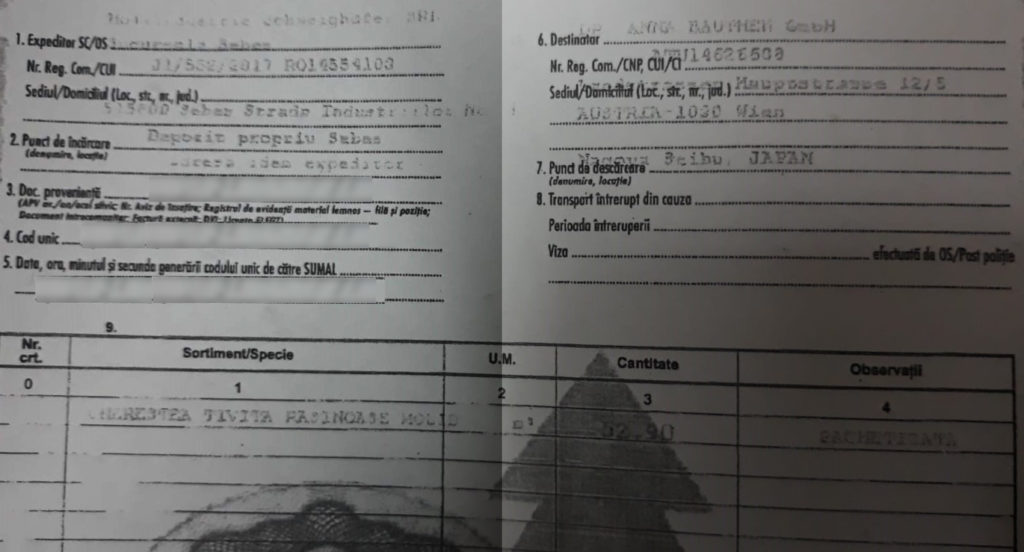 Schweighofer SRL
1. Expeditor SC/OS Sucursala Sebes
Nr. Reg. Com./CUI J1/532/2017 RO14554103
Sediul/Domiciliul (Loc., str., nr., jud.)
Sebes Strada Industriilor Nr
2. Punct de încărcare Depozit propriu Sebes
(denumire, locație)
adresa idem expeditor
3. Doc. proveniență
(APV nr./an/ocol silvic; Nr. Aviz de însoțire; Registrul de evidență material lemnos – filă și poziție;
Document intracomunitar; Factură externă; DVI;
4. Cod unic
5. Data, ora, minutul și secunda generării codului unic de către SUMAL
6. Destinatar DR ANNA GmbH
Nr. Reg. Com./CNP, CUI/CI
Sediul/Domiciliul (Loc., str., nr., jud.) 12/5
AUSTRIA-1030 Wien
7. Punct de descărcare Nagoya Seibu, JAPAN
(denumire, locație)
8. Transport întrerupt din cauza
Perioada întreruperii
Viza efectuată de OS/Post poliție
9.
Nr. crt. Sortiment/Specie U.M. Cantitate Observații
0 1 2 3 4
CHERESTEA TIVITA RASINOASE MOLID m³ 52,90 PACHETIZATA